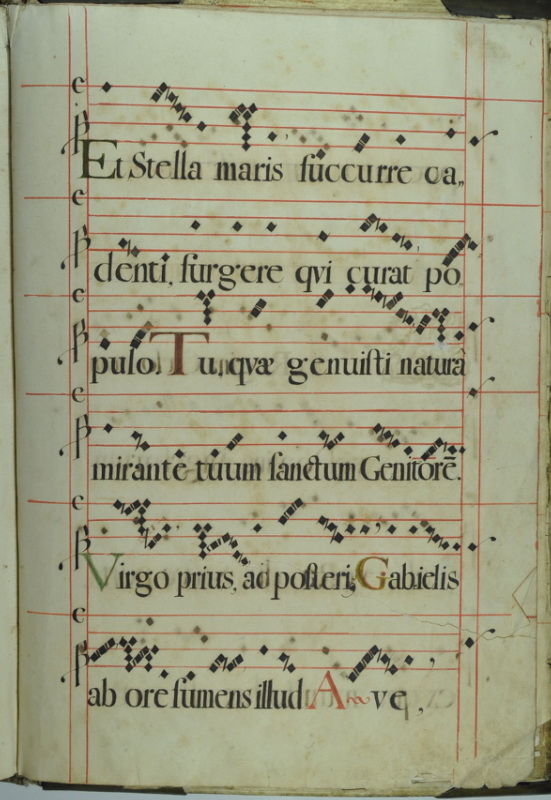 Et Stella maris succurre ca„
denti, surgere qvi curat po
pulo. Tu, qvæ genuisti naturâ
mirante tuum sanctum Genitorē.
Virgo prius, ac posteri; Gabielis
ab ore sumens illud A ve,